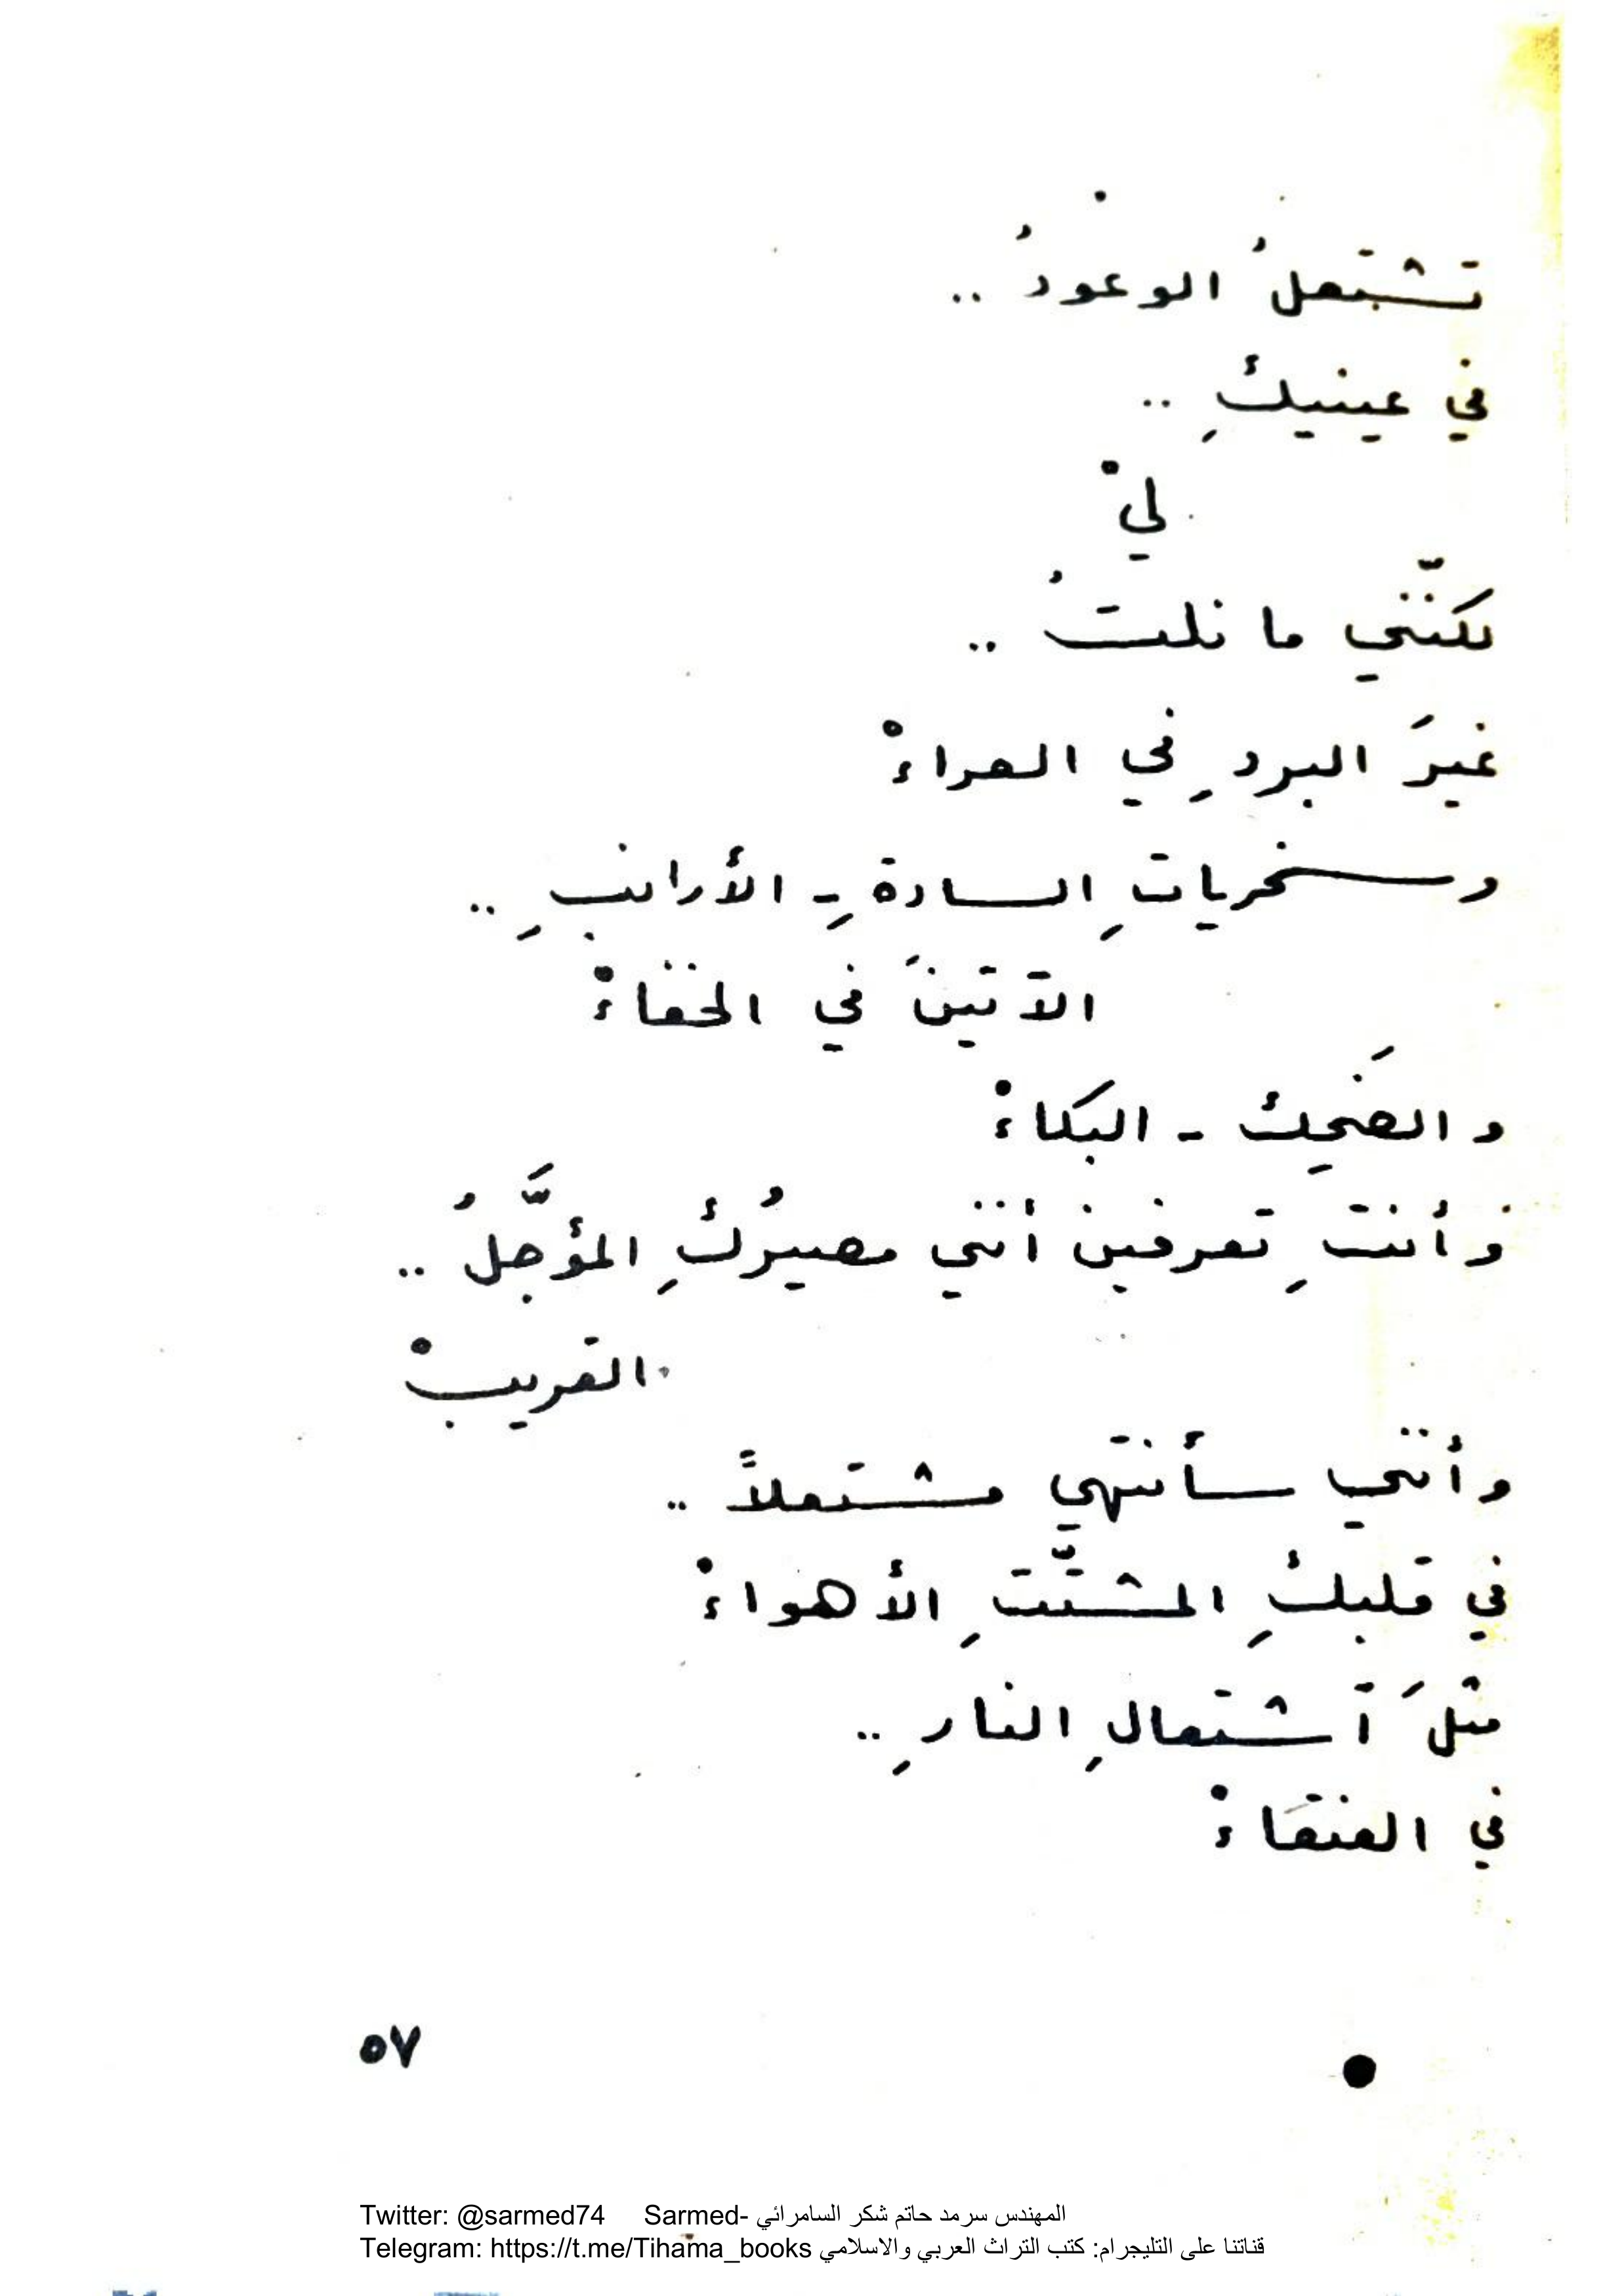 تشتعلُ الوعودُ ..
في عينيكِ ..
ليْ
لكنّني ما نلتُ ..
غيرَ البردِ في العراءْ
وسخرياتِ السادةِ - الأرانبِ ..
الآتينَ في الخفاءْ
والضَحِك - البكاءْ
وأنتِ تعرفين أنني مصيرُكِ المؤجَّلُ ..
القريبْ
وأنني سأنتهي مشتعلاً ..
في قلبكِ المشتّتِ الأهواءْ
مثلَ آشتعالِ النارِ ..
في العنقاءْ
٥٧
Twitter: @sarmed74 Sarmed- المهندس سرمد حاتم شكر السامرائي
Telegram: https://t.me/Tihama_books قناتنا على التليجرام: كتب التراث العربي والاسلامي